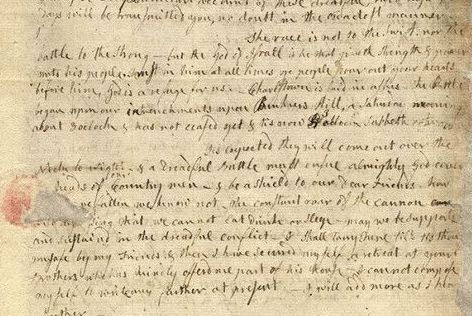 days will be transmitted you, no doubt in the exactest manner
The race is not to the swift, nor the
battle to the Strong — but the God of Israel is he that giveth strength & power
unto his people. Trust in him at all times ye people pour out your hearts
before him, God is a refuge for us. — Charlstown is laid in ashes. The Battle
began upon our intrenchments upon Bunkers Hill, a Saturday morning
about 3 oclock & has not ceased yet & tis now 3 oclock Sabbeth afternoon
Tis expected they will come out over the
Neck to night — & a dreadful Battle must ensue almighty God cover
heads of our Country men — & be a shield to our Dear Friends. how
have fallen we know not — the constant roar of the cannon
that we cannot eat Drink or sleep — may we be supported
and sustaind in the dreadful conflict — I shall tarry here till tis thot
unsafe by my Friends & then I have secured myself a retreat at your
Brothers who has kindly offerd me part of his House — I cannot compose
myself to write any further at present — I will add more as I hear
further